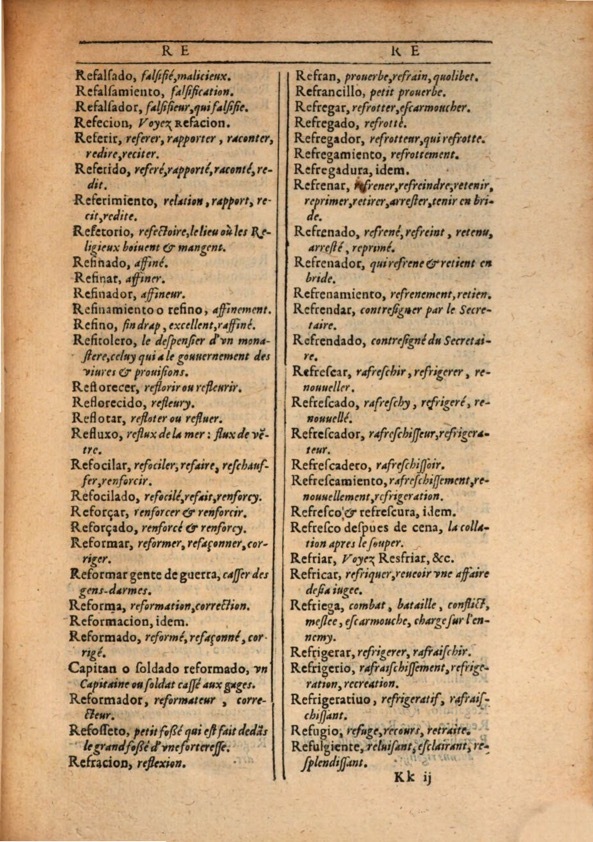 RE
RE
Refalſado, falſifié, malicieux.
Refalſamiento, falſification.
Refalſador, falſifieur, qui falſifie.
Refecion, Voyez Refacion.
Referir, referer, rapporter, raconter,
redire, reciter.
Referido, referé, rapporté, raconté, re-
dit.
Referimiento, relation, rapport, re-
cit, redite.
Refetorio, refectoire, le lieu où les Re-
ligieux boiuent & mangent.
Refinado, affiné.
Refinar, affiner.
Refinador, affineur.
Refinamiento o refino, affinement.
Refino, fin drap, excellent, raffiné.
Refitolero, le deſpenſier d'vn mona-
ſtere, celuy qui a le gouuernement des
viures & prouiſions.
Reflorecer, reflorir ou refleurir.
Reflorecido, refleury.
Reflotar, refloter ou refluer.
Refluxo, reflux de la mer: flux de vē-
tre.
Refocilar, refociler, refaire, reſchauf-
fer, renforcir.
Refocilado, refocilé, refait, renforcy.
Reforçar, renforcer & renforcir.
Reforçado, renforcé & renforcy.
Reformar, reformer, refaçonner, cor-
riger.
Reformar gente de guerra, caſſer des
gens-darmes.
Reforma, reformation, correction.
Reformacion, idem.
Reformado, reformé, refaçonné, cor-
rigé.
Capitan o soldado reformado, vn
Capitaine ou soldat caſſé aux gages.
Reformador, reformateur, corre-
cteur.
Refoſſeto, petit foſſé qui eſt fait dedās
le grand foſſé d'vne fortereſſe.
Refracion, reflexion.
Refran, prouerbe, refrain, quolibet.
Refrancillo, petit prouerbe.
Refregar, refrotter, eſcarmoucher.
Refregado, refrotté.
Refregador, refrotteur, qui refrotte.
Refregamiento, refrottement.
Refregadura, idem.
Refrenar, refrener, refreindre, retenir,
reprimer, retirer, arreſter, tenir en bri-
de.
Refrenado, refrené, refreint, retenu,
arreſté, reprimé.
Refrenador, qui refrene & retient en
bride.
Refrenamiento, refrenement, retien.
Refrendar, contreſigner par le Secre-
taire.
Refrendado, contreſigné du Secretai-
re.
Refreſcar, rafreſchir, refrigerer, re-
nouueller.
Refreſcado, rafreſchy, refrigeré, re-
nouuellé.
Refreſcador, rafreſchiſſeur, refrigera-
teur.
Refreſcadero, rafreſchiſſoir.
Refreſcamiento, rafreſchiſſement, re-
nouuellement, refrigeration.
Refreſco & refreſcura, idem.
Refreſco deſpues de cena, la colla-
tion apres le ſouper.
Refriar, Voyez Resfriar, &c.
Refricar, refriquer, reuoir vne affaire
deſia iugee.
Refriega, combat, bataille, conflict,
meſlee, eſcarmouche, charge ſur l'en-
nemy.
Refrigerar, refrigerer, rafraiſchir.
Refrigerio, rafraiſchiſſement, refrige-
ration, recreation.
Refrigeratiuo, refrigeratif, rafraiſ-
chiſſant.
Refugio, refuge, recours, retraite.
Refulgiente, reluiſant, eſclairant, re-
ſplendiſſant.
Kk ij